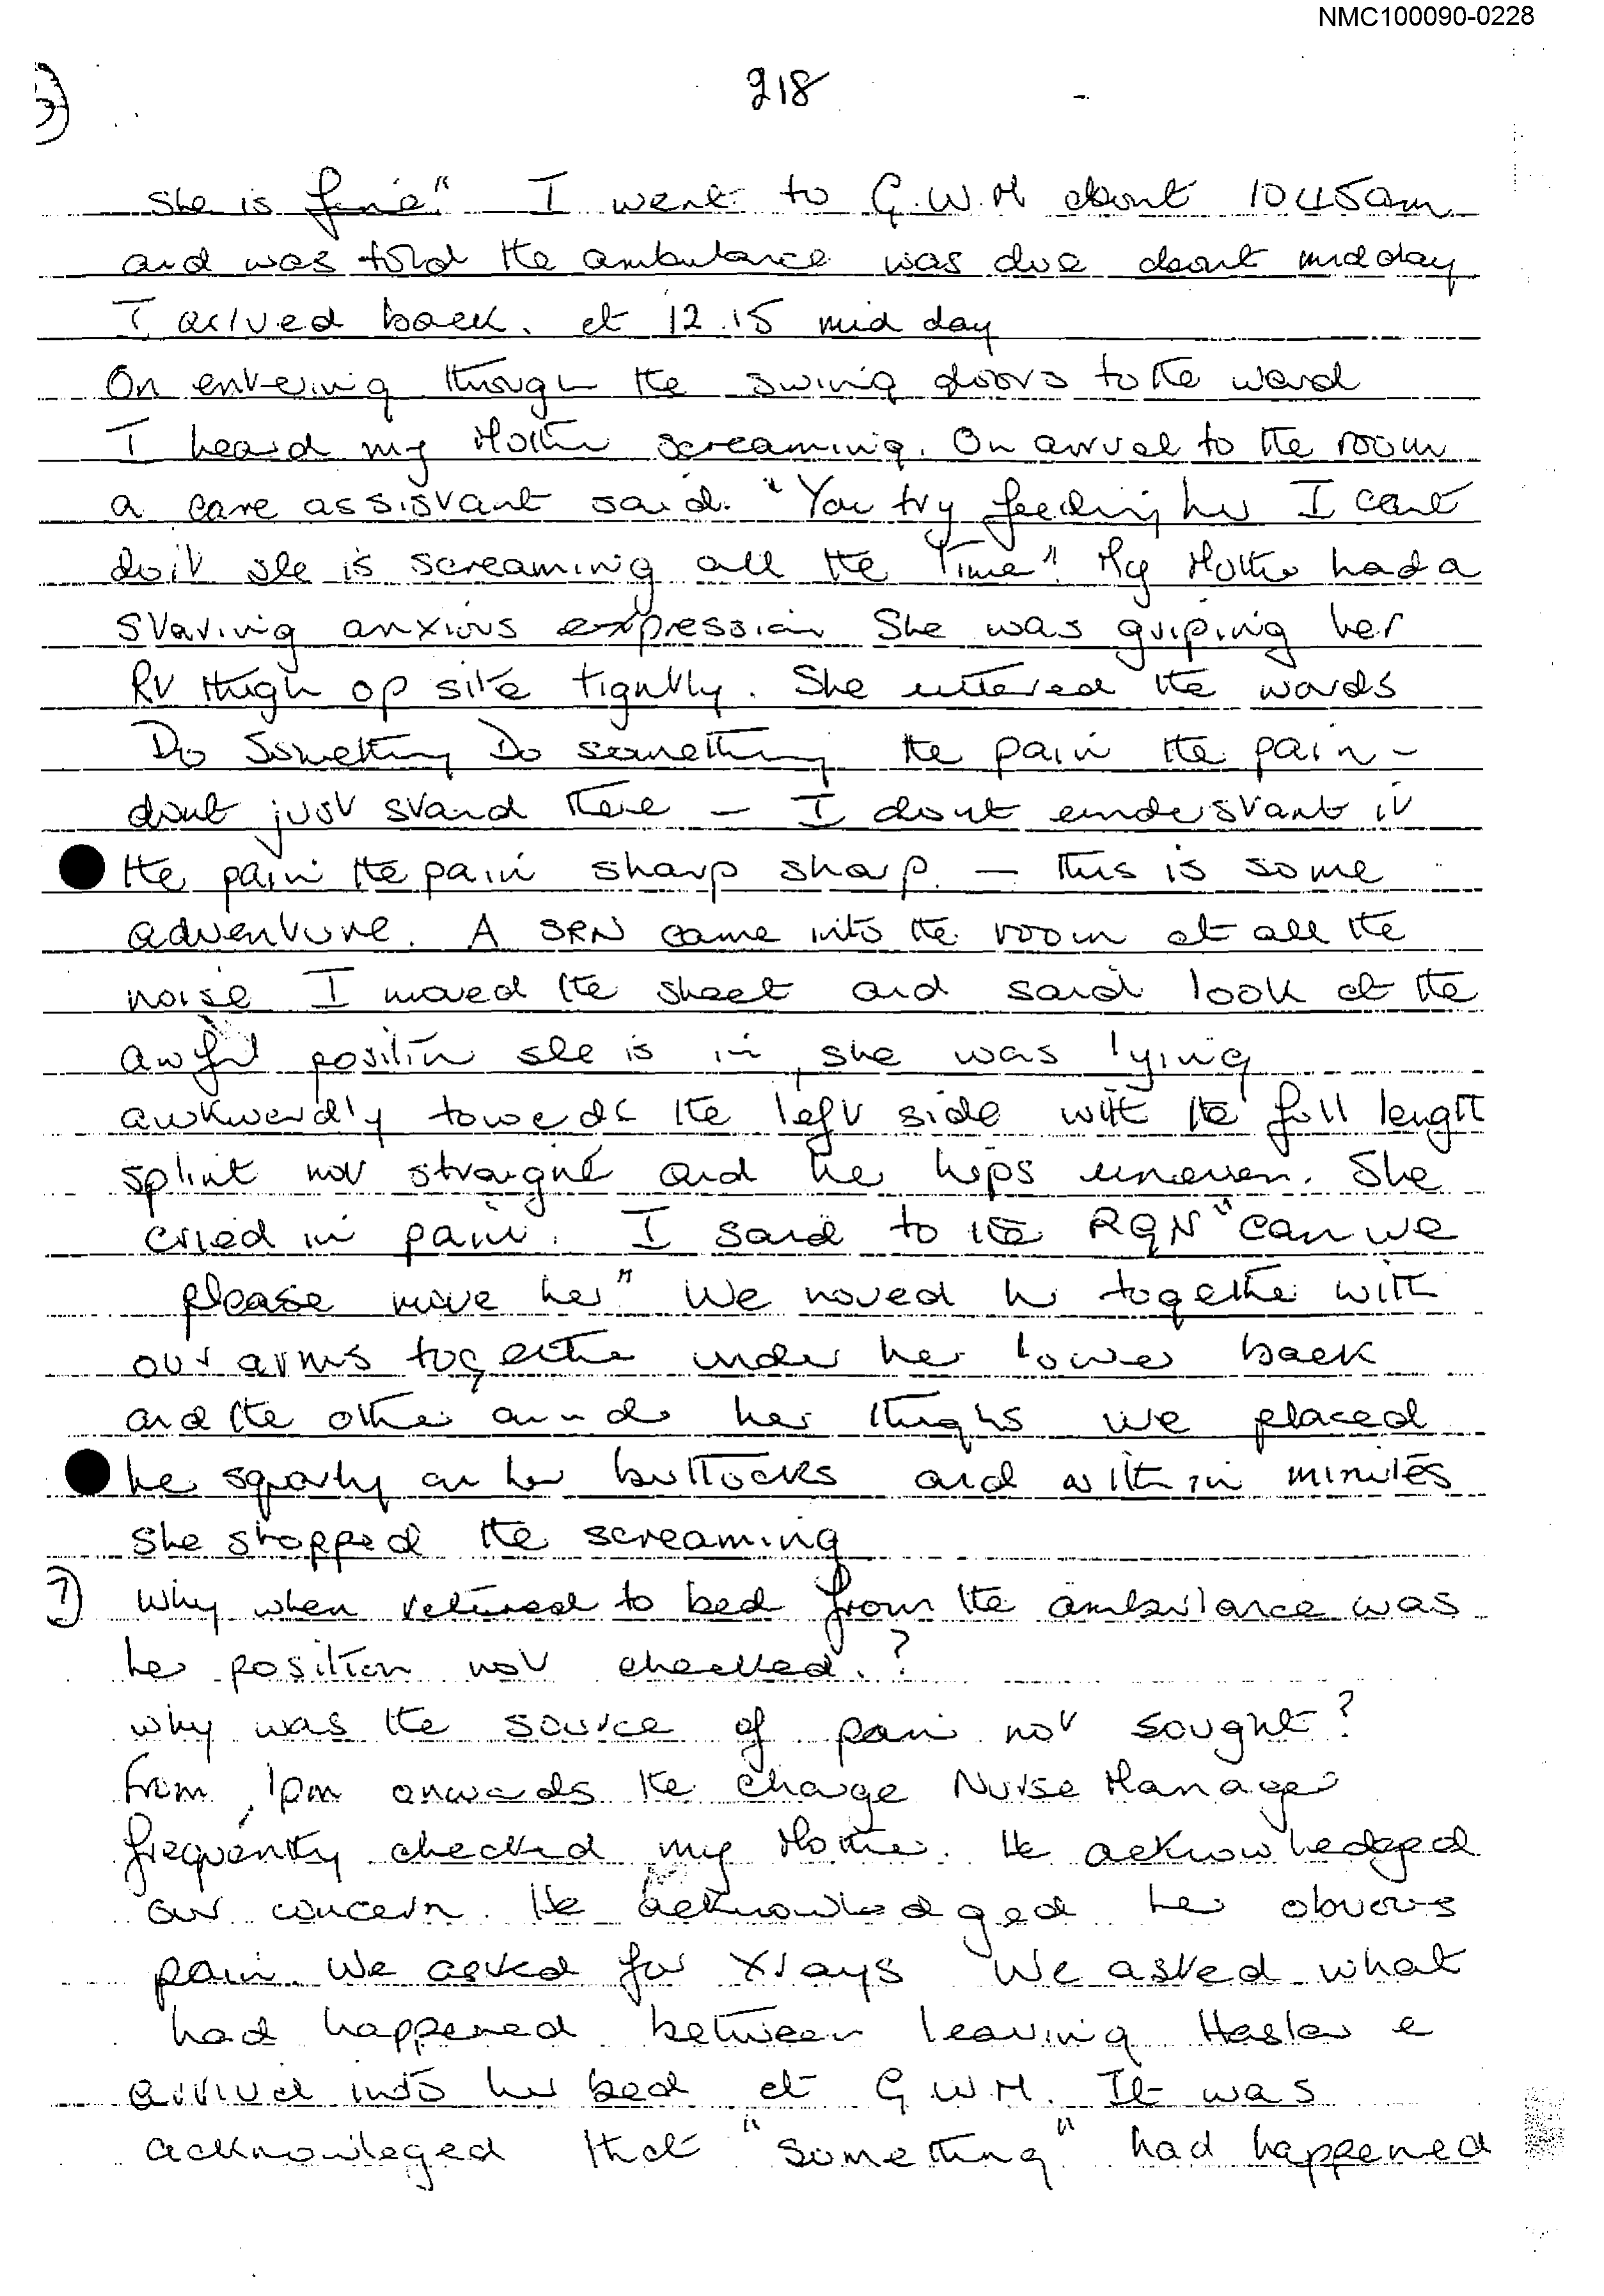 NMC100090-0228
218
she is fine" I went to G.W.H about 1045am
and was told the ambulance was due about midday
I arived back. at 12.15 mid day
On entering through the swing doors to the ward
I heard my Mother screaming. On arrival to the room
a care assistant said. "You try feeding her I cant
do it she is screaming all the Time". My Mother had a
staring anxious expression She was griping her
Rt thigh op site tightly. She uttered the words
Do Something Do something the pain the pain –
dont just stand there – I dont understant it
the pain the pain sharp sharp. – this is some
adventure. A SRN came into the room at all the
noise I moved the sheet and said look at the
awful position she is in, she was lying
awkwardly towards the left side with the full length
splint not straight and her hips uneven. She
cried in pain. I said to the RGN "can we
please move her" We moved her together with
our arms together under her lower back
and the other under her thighs we placed
her squarly on her buttocks and within minutes
she stopped the screaming
7) Why when returned to bed from the ambulance was
her position not checked.?
why was the source of pain not sought?
From 1pm onwards the Charge Nurse Manager
frequently checked my Mother. He acknowledged
our concern. He acknowledged her obvious
pain. We asked for Xrays We asked what
had happened between leaving Haslar &
arrival into her bed at G W H. It was
acknowleged that "something" had happened